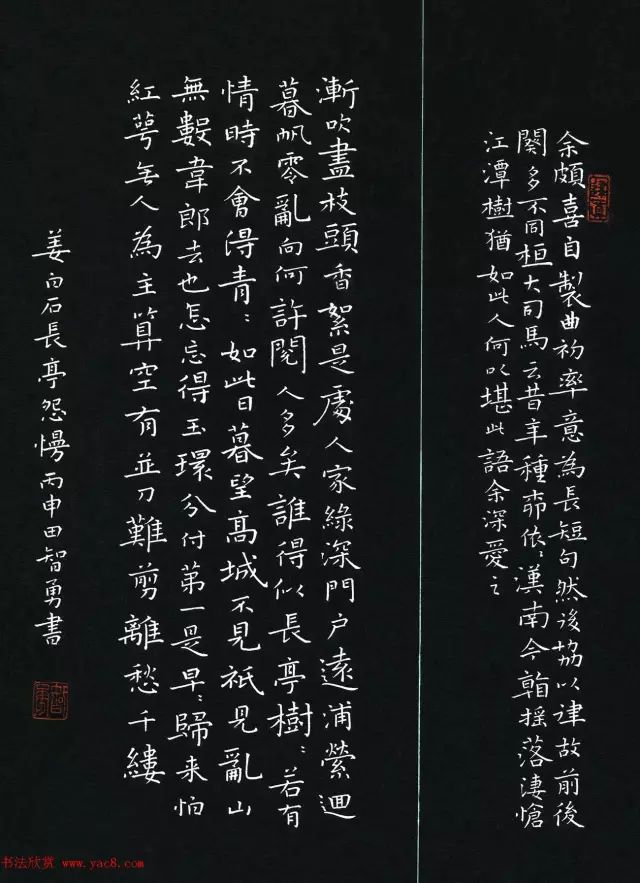 余頗喜自製曲初率意為長短句然後協以律故前後
闋多不同桓大司馬云昔年種柳依〻漢南今看搖落淒愴
江潭樹猶如此人何以堪此語余深愛之
漸吹盡枝頭香絮是處人家綠深門户遠浦縈迴
暮帆零亂向何許閱人多矣誰得似長亭樹〻若有
情時不會得青〻如此日暮望高城不見衹見亂山
無數韋郎去也怎忘得玉環分付第一是早〻歸来怕
紅萼無人為主算空有並刀難剪離愁千縷
姜白石長亭怨慢丙申田智勇書
书法欣赏 www.yac8.com